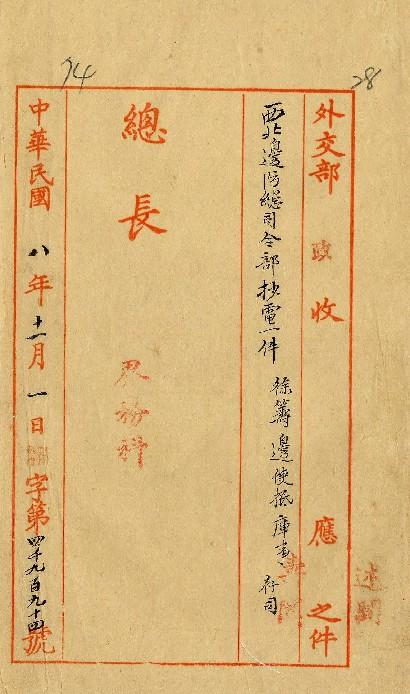 28
74
外交部 政 收 應 之件
西北邊防總司令部抄電一件 徐籌邊使抵庫事 存司
總長
中華民國八年十一月一日 字第四千九百九十四號